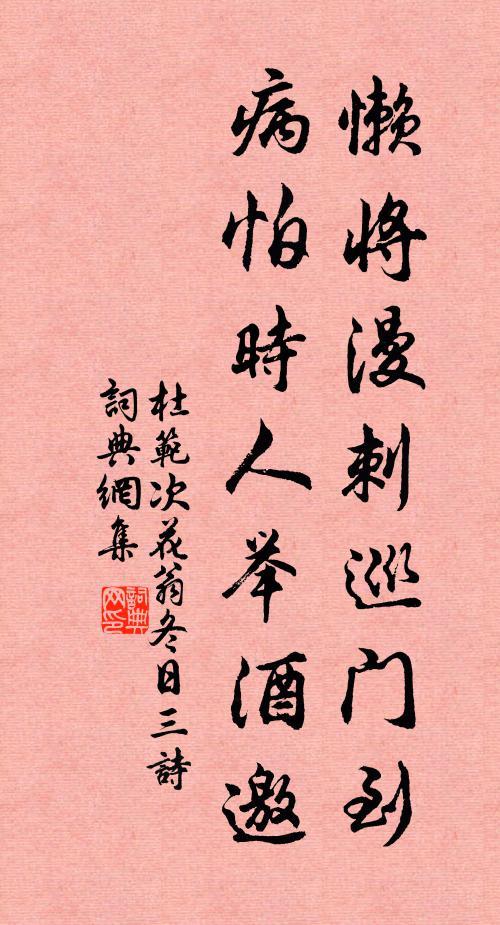 懒将漫刺巡门到
病怕時人举酒邀
杜範次花翁冬日三詩
詞典網集
詞典网印